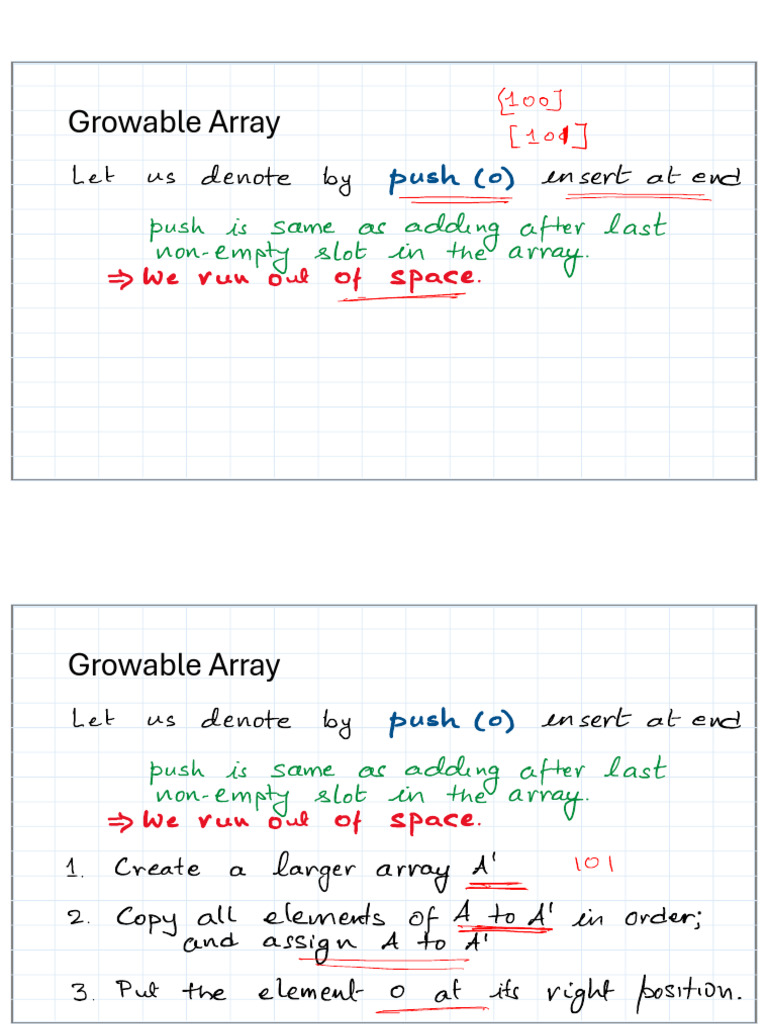 Growable Array
[100]
[101]
Let us denote by push (o) insert at end
push is same as adding after last
non-empty slot in the array.
⇒ We run out of space.
Growable Array
Let us denote by push (o) insert at end
push is same as adding after last
non-empty slot in the array.
⇒ We run out of space.
1. Create a larger array A' 101
2. Copy all elements of A to A' in order;
and assign A to A'
3. Put the element o at its right position.